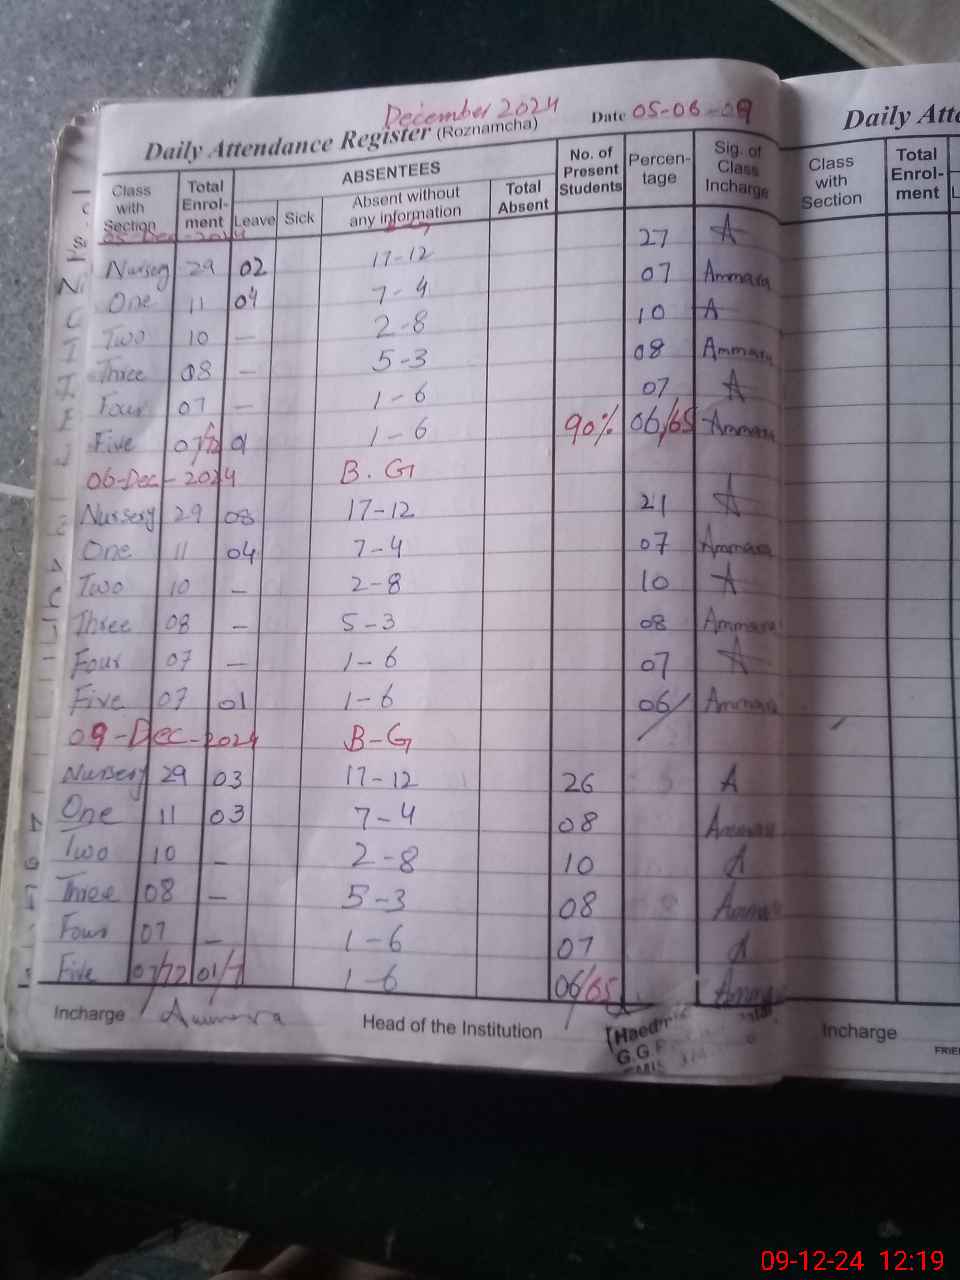 December 2024
Daily Attendance Register (Roznamcha) Date 05-06-09
Class with Section Total Enrol-ment ABSENTEES Leave Sick Absent without any information Total Absent No. of Present Students Percen-tage Sig. of Class Incharge
05-Dec-2024
Nursery 29 02 17-12 27 A
One 11 04 7-4 07 Ammara
Two 10 – 2-8 10 A
Three 08 – 5-3 08 Ammara
Four 07 – 1-6 07 A
Five 07/72 01 1-6 90% 06/65 Ammara
06-Dec-2024 B.G
Nursery 29 08 17-12 21 A
One 11 04 7-4 07 Ammara
Two 10 – 2-8 10 A
Three 08 – 5-3 08 Ammara
Four 07 – 1-6 07 A
Five 07 01 1-6 06/ Ammara
09-Dec-2024 B-G
Nursery 29 03 17-12 26 A
One 11 03 7-4 08 Ammara
Two 10 – 2-8 10 A
Three 08 – 5-3 08 Ammara
Four 07 – 1-6 07 A
Five 07/72 01/7 1-6 06/65
Incharge Ammara Head of the Institution
G.G.P
Daily Atte
Class with Section Total Enrol-ment L
Incharge
FRIE
09-12-24 12:19